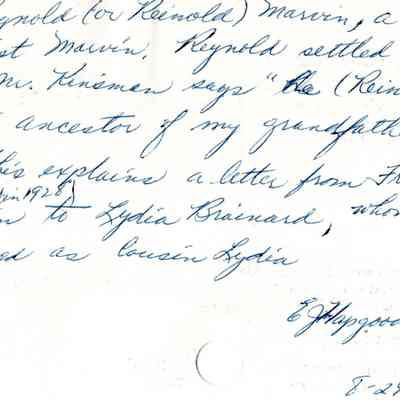 ynold (or Reinold) Marvin, a
st Marvin. Reynold settled
Mr. Kinsman says "he (Rein
ancestor of my grandfath
his explains a letter from Fr
in 1928)
n to Lydia Brainard, whom
ed as Cousin Lydia
E J Hapgood
8-29